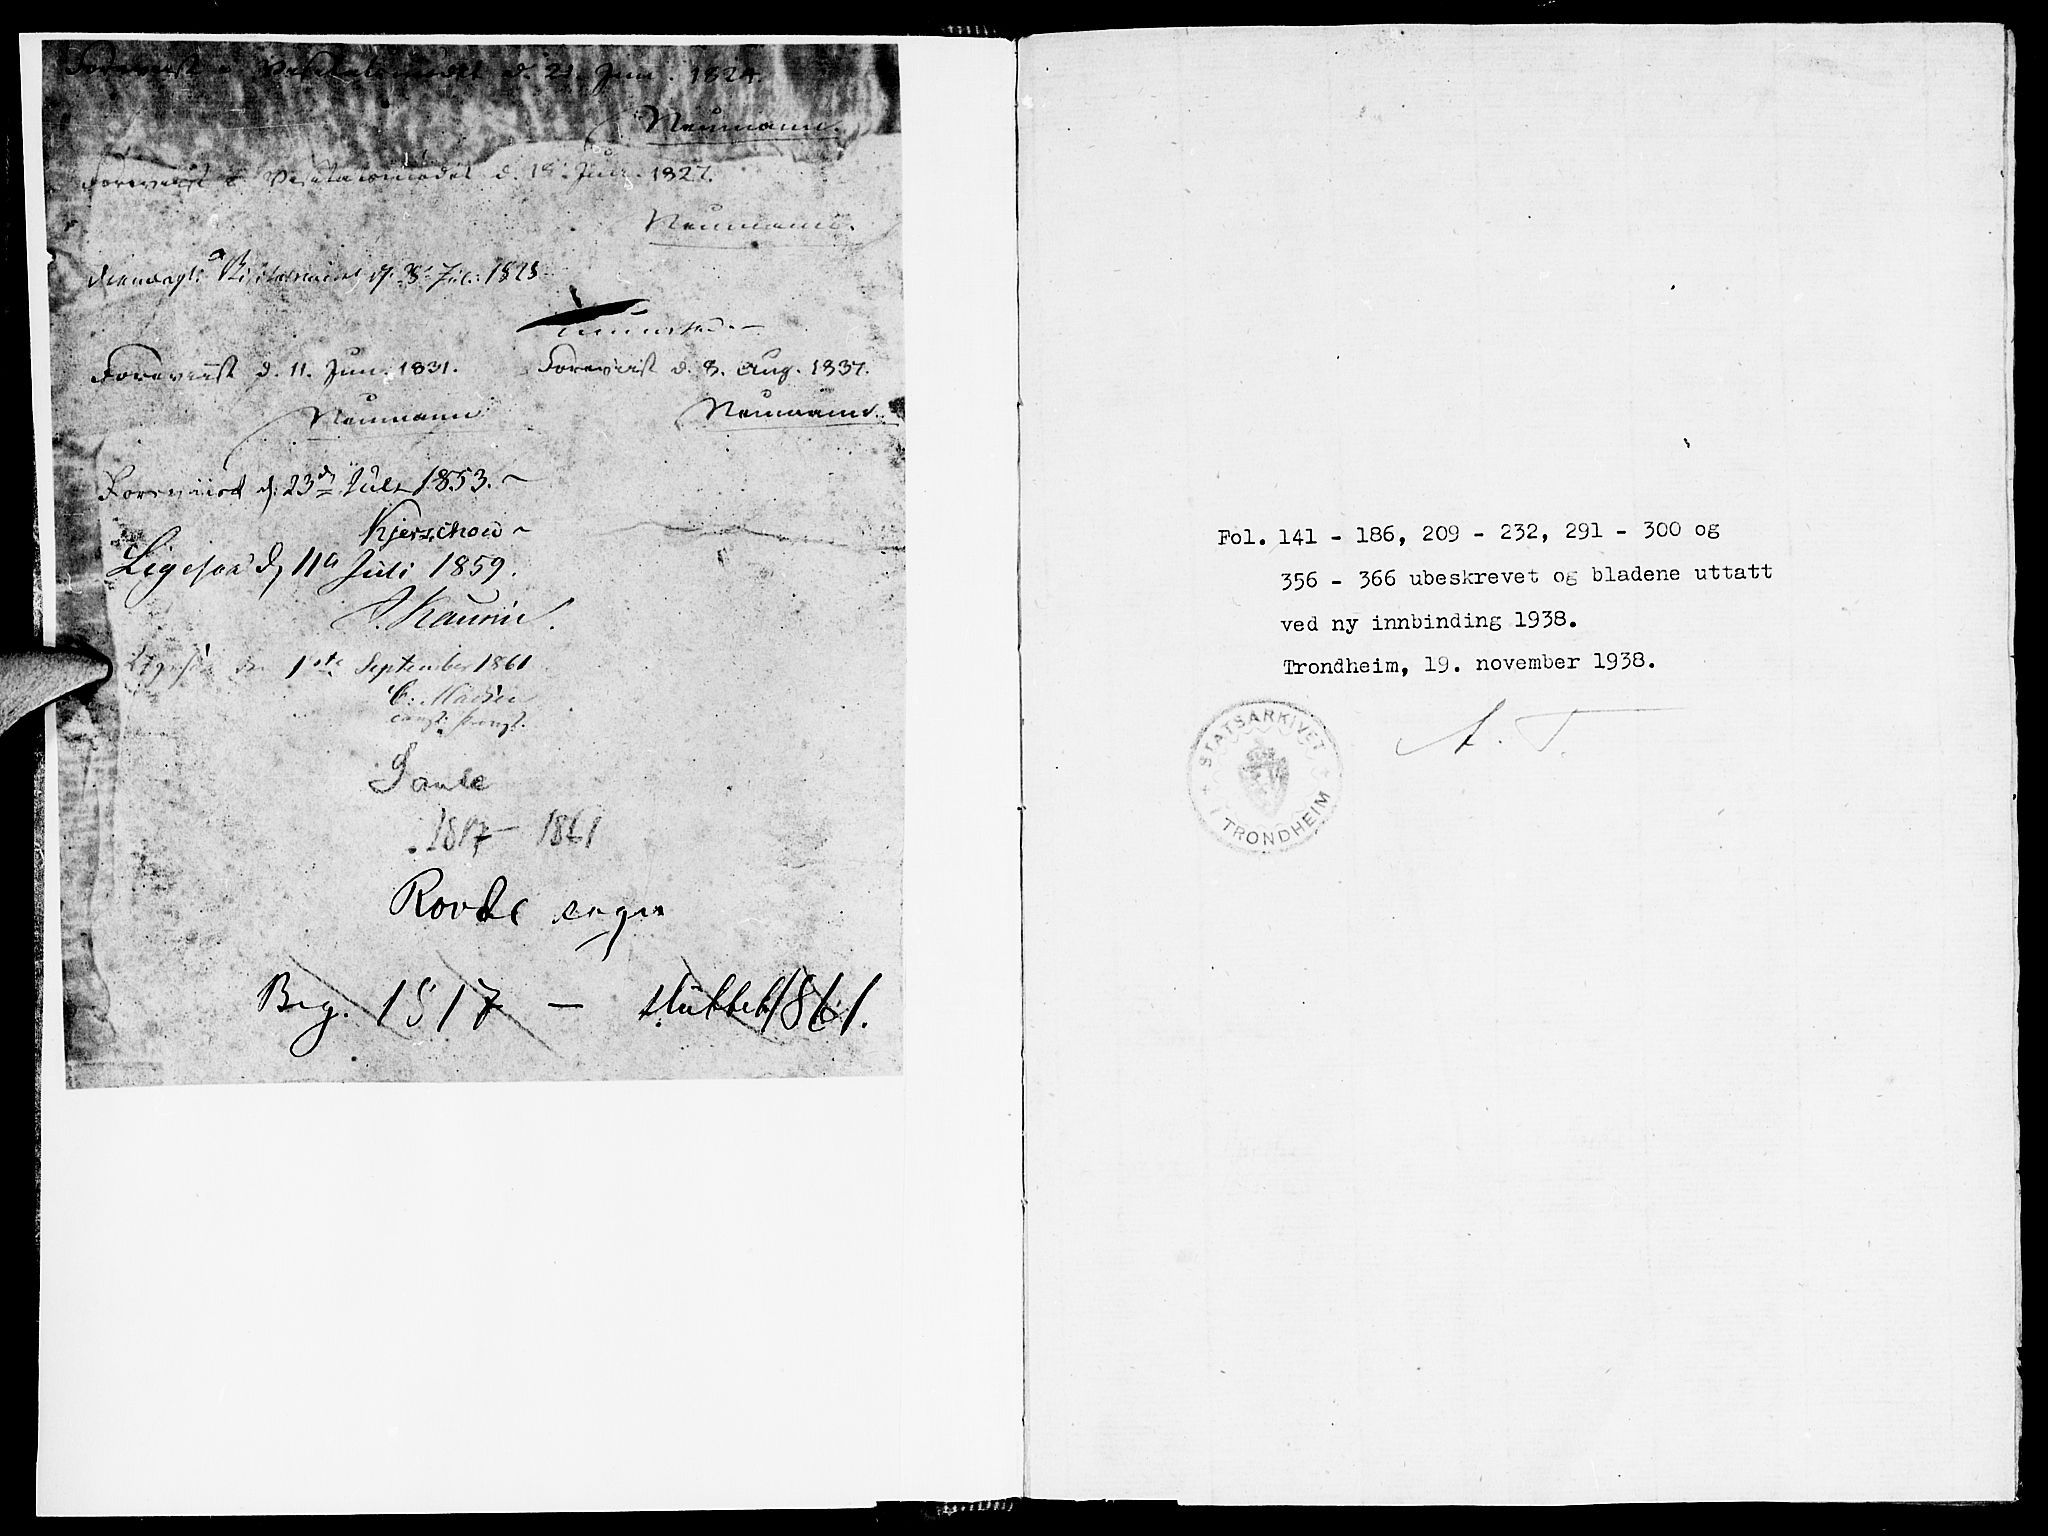 Foreviist i Visitatsmødet d. 21. Juni. 1824.
Neumann.
Foreviist i Visitatsmødet d. 18. Juni. 1827.
Neumann.
d. 3. Juli 1828
Foreviist d. 11. Jun. 1831.
Neumann
Foreviist d. 8. Aug. 1837.
Neumann.
Foreviist d. 23de Juli 1853.
Kjerschow
Ligesaa d. 11te Juli 1859.
J. Kaurin.
Ligesaa den 1ste September 1861
const.
Sande
1817 – 1861
Rovde sogn
Beg. 1817 — sluttet 1861.
Fol. 141 - 186, 209 - 232, 291 - 300 og
356 - 366 ubeskrevet og bladene uttatt
ved ny innbinding 1938.
Trondheim, 19. november 1938.
A. T.
STATSARKIVET
I TRONDHEIM